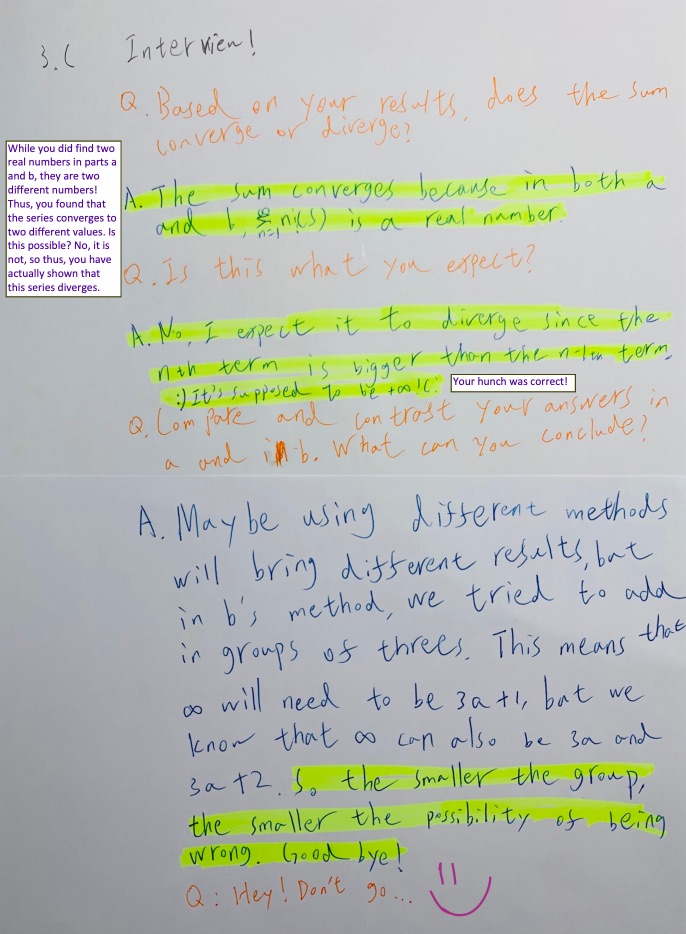 3.C Interview!
Q. Based on your results, does the sum
converge or diverge?
While you did find two
real numbers in parts a
and b, they are two
different numbers!
Thus, you found that
the series converges to
two different values. Is
this possible? No, it is
not, so thus, you have
actually shown that
this series diverges.
A. The sum converges because in both a
and b, is a real number.
Q. Is this what you expect?
A. No, I expect it to diverge since the
nth term is bigger than the n-1th term.
:) It's supposed to be +∞!(:
Your hunch was correct!
Q. Compare and contrast your answers in
a and in b. What can you conclude?
A. Maybe using different methods
will bring different results, but
in b's method, we tried to add
in groups of threes. This means that
∞ will need to be 3a+1, but we
know that ∞ can also be 3a and
3a+2. So the smaller the group,
the smaller the possibility of being
wrong. Good bye!
Q: Hey! Don't go...